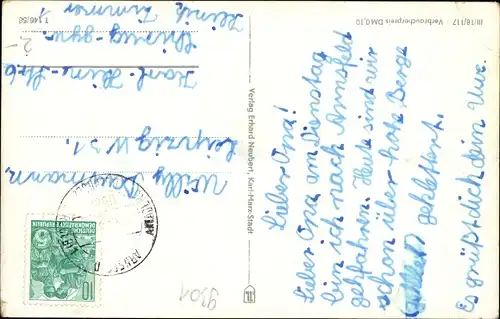 Lieber Opa!
Lieber Opa am Dienstag
bin ich nach Arnsfeld
gefahren. Heute sind wir
schon über hohe Berge
geklettert.
Es grüßt dich dein Uwe.
Verlag Erhard Neubert, Karl-Marx-Stadt
III/18/117 Verbraucherpreis DM 0,10
T 146/56
Willy
Leipzig W 31.
Karl-Heine-Str. 6
Klinik
Zimmer 1
DEUTSCHE
DEMOKRATISCHE REPUBLIK
10
9301